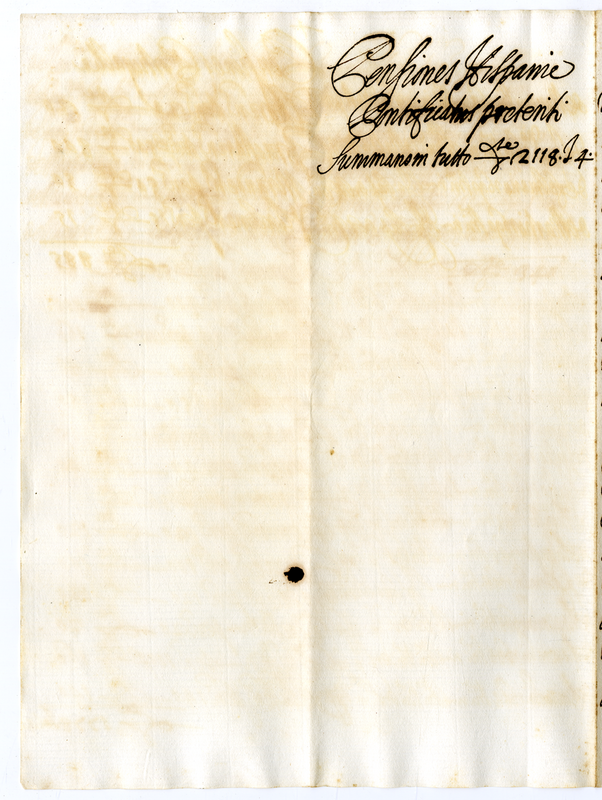 Pensiones Hispanie
Pontificatus preteriti
Summano in tutto 2118. 4.